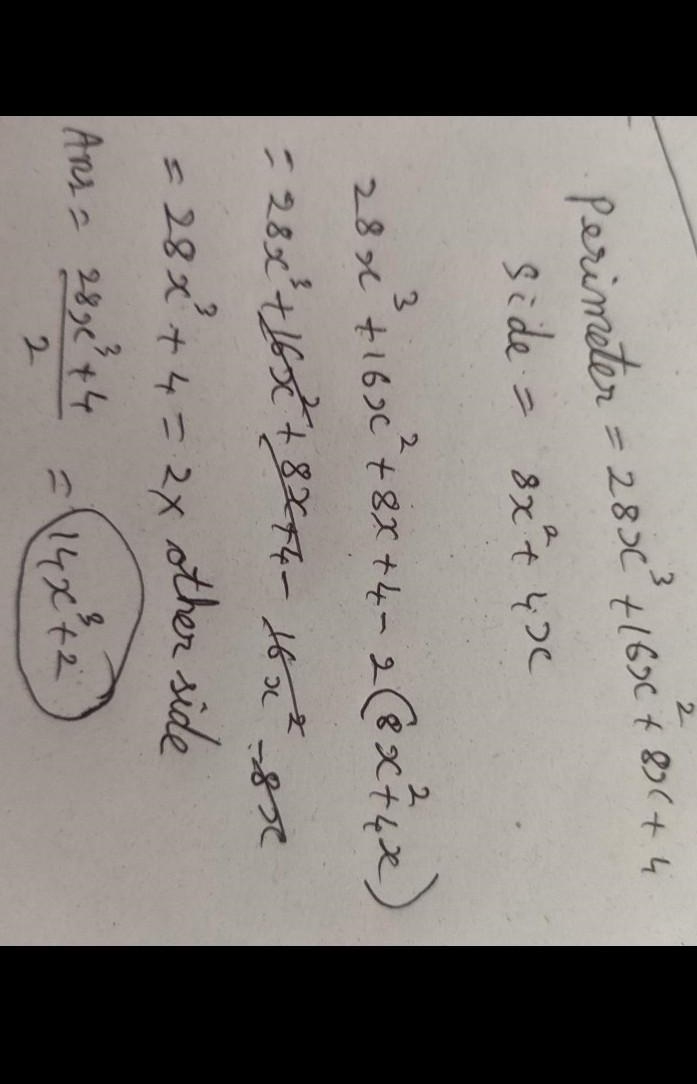 Perimeter = 28x³ + 16x² + 8x + 4
Side = 8x² + 4x
28x³ + 16x² + 8x + 4 - 2(8x² + 4x)
= 28x³ + 16x² + 8x + 4 - 16x² - 8x
= 28x³ + 4 = 2x other side
Ans = 28x³ + 4 / 2 = 14x³ + 2